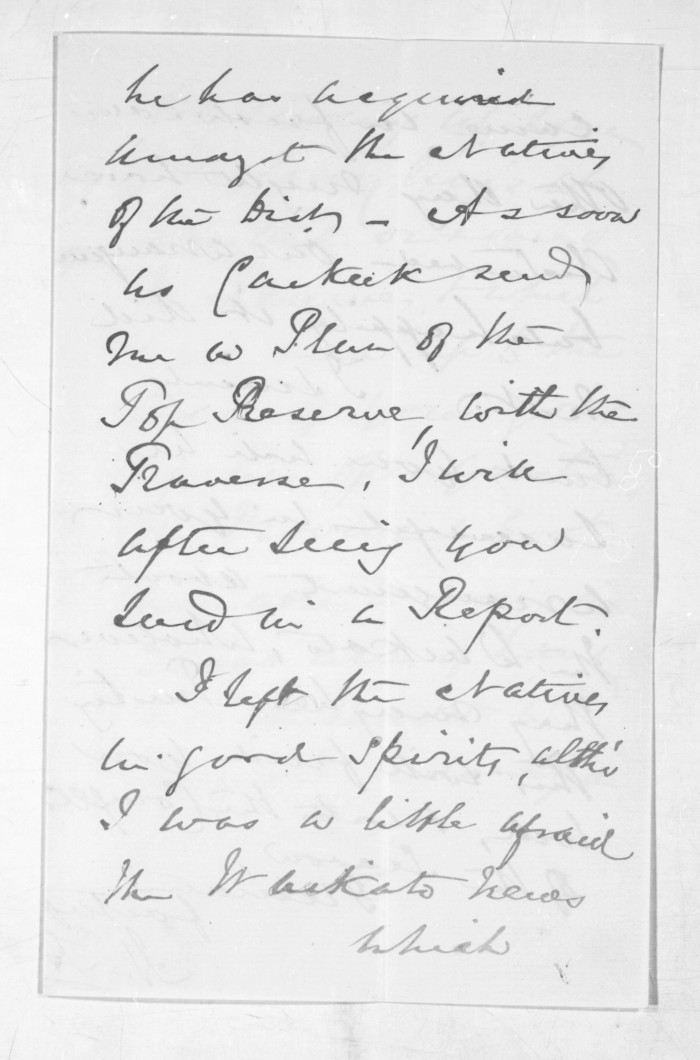 he has acquired
amongst the Natives
of the Dist. – As soon
as Carkeek sends
me a Plan of the
Top Reserve, with the
Traverse, I will
after seeing you
send in a Report.
I left the Natives
in good spirits, altho'
I was a little afraid
the Waikato news
which